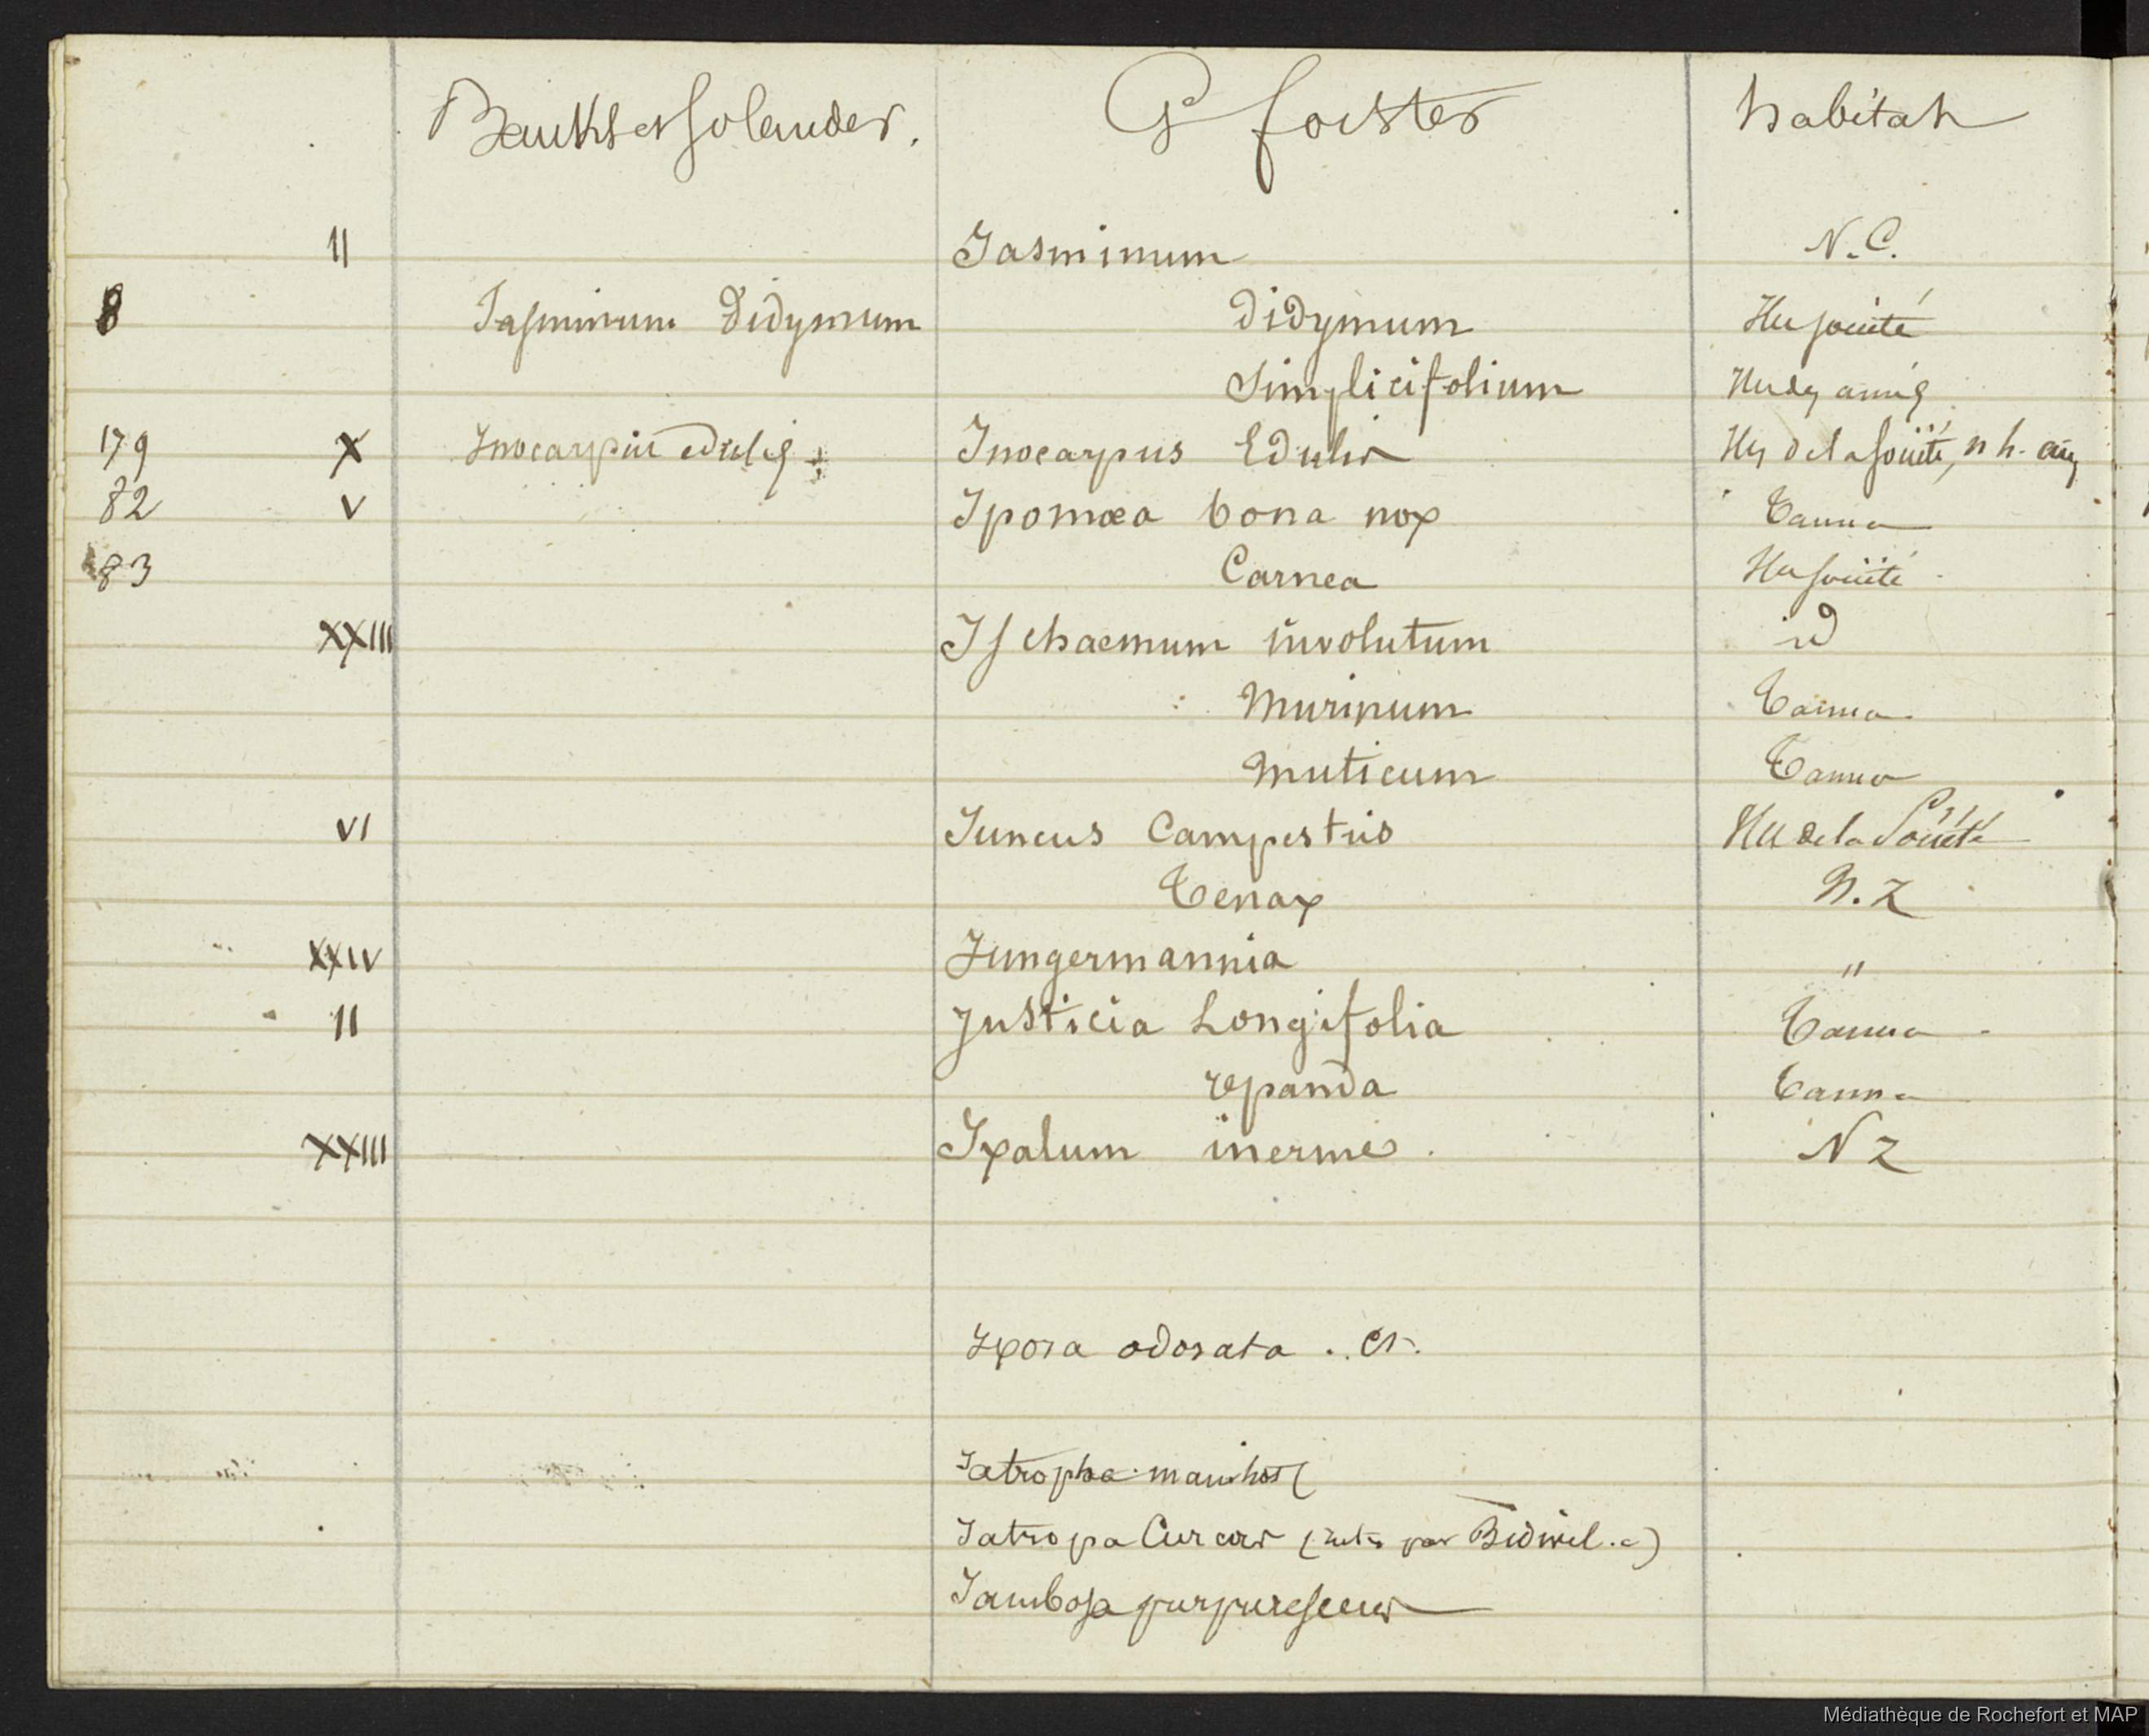 Banks et Solander. G forster habitat
II Jasminum N.C.
8 Jasminum Didymum Didymum Iles société
Simplicifolium Iles des amis
179 X Inocarpus edulis Inocarpus Edulis Iles de la société, n h.
82 V Ipomœa bona nox Tanna
83 Carnea Iles société
XXIII Ischaemum involutum id
Murinum Tanna
Muticum Tanna
VI Juncus Campestris Iles de la Société
Tenax N.Z
XXIV Jungermannia "
II Justicia Longifolia Tanna
repanda Tanna
XXIII Ixalum inerme N Z
Ixora odorata
Jatropha manihot
Jatropa Curcas ( par Bidwil.)
Jambosa purpurescens
Médiathèque de Rochefort et MAP